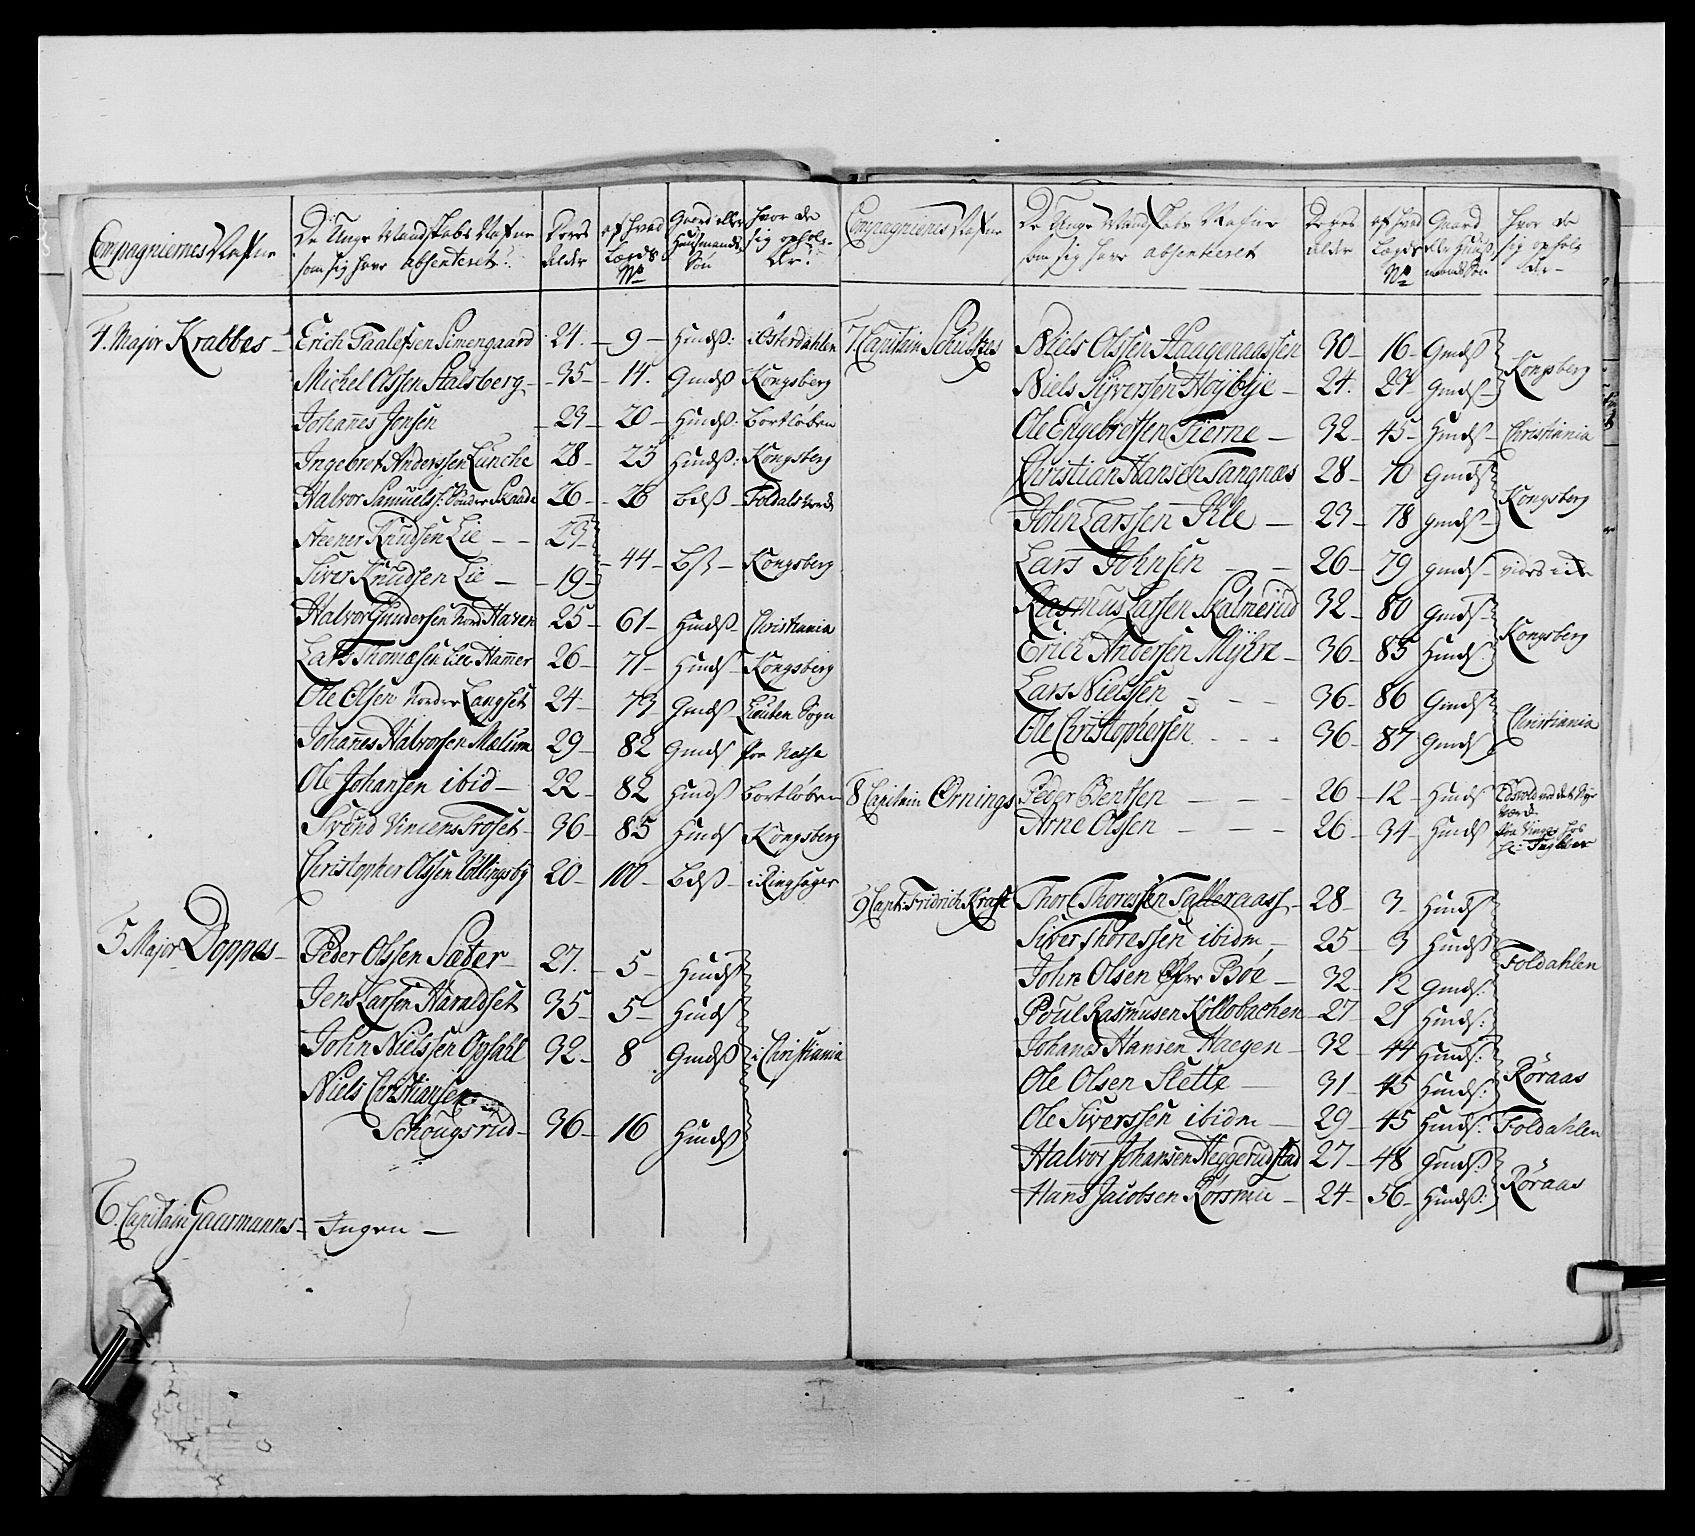 Compagniernes Nafne | De Unge Mandskabs Nafne som sig have absenteret | Deres Alder | af hvad Lægds No | Gaard eller Huusmands Søn | hvor de sig opholder
4. Major Krabbes – Erich Taalefsen Simengaard 24. – 9 – Hmdß: i Österdahlen
Michel Olssen Stalsberg – 35 – 14. Gmdß Kongsberg
Johannes Jensen – 23 – 20 – Hmdß: bortløben
Ingebret Anderssen Lunche 28 – 23 Hmdß: Kongsberg
Halvor Samuels: 26 – 26 bdß – Foldals
Steener Knudsen Lie – – 23
Siver Knudsen Lie – – 19 – 44 – bß – Kongsberg
Halvor Gundersen Haren 25 – 61 – Hmdß – Christiania
Lars Thomæsen Hammer 26 – 71 – Hmdß – Kongsberg
Ole Olsen Nordre Langset 24 – 73 – Gmdß Sogn
Johannes Halvorsen Mælum 29 – 82 Gmdß paa Næsse
Ole Johansen ibid – 22 – 82 Hmdß bortløben
Svend Troset – 36 – 85 Hmdß Kongsberg
Christopher Olssen Röllingsby 20 – 100 – bdß – i Ringsager
5 Major Doppes – Peder Olssen Sæter – 27. – 5 – Hmdß
Jens Larsen Haraldset 35 – 5 – Hmdß
John Nielssen Opsahl 32 – 8 Gmdß i Christiania
Niels Christiansen
Schougsrud – 36 – 16 Hmdß
6. Capitain Gaarmanns – Ingen –
Compagniernes Nafne | De Unge Mandskabs Nafne som sig have absenteret | Deres Alder | af hvad Lægds No | Gaard eller Huusmands Søn | hvor de sig opholder –
7. Capitain Schultzes Niels Olssen Haagenaassen 30 – 16 – Gmdß
Niels Syversen Høybye – 24. 27 – Gmdß – Kongsberg
Ole Engebretsen Tierne – 32 – 45 – Hmdß – Christiania
Christian Hansen Tangnæs 28 – 70 Gmdß
John Larssen Ile – 23 – 78 Gmdß – Kongsberg
Lars Johnsen – – 26 – 79 Gmdß –
Rasmus Larsen Skalmerud 32 – 80 Gmdß –
Erich Andersen Myhre – 36 – 85 Hmdß Kongsberg
Lars Nielssen – – – 36 – 86 Gmdß
Ole Christophersen – – – 36 – 87 Gmdß Christiania
8 Capitain Ørnings Peder Bentsen – – – 26 – 12 – Hmdß
Arne Olssen – – – 26 – 34 – Hmdß
9 Capt: Fridrich Kraft Thor Thoressen Talleraass – 28 – 3 – Hmdß
Siver Thoressen ibidm – 25 – 3 Hmdß Foldahlen
John Olsen Øfre Bøe – 32 – 12 Gmdß:
Poul Rasmusen Kollobachen – 27 – 21 Hmdß:
Johanes Hansen Haegen – 32 – 44 Hmdß:
Ole Olsen Slette – 31 – 45 Hmdß: Røraas
Ole Siverssen ibidm – 29 – 45 Hmdß: Foldahlen
Halvor Johansen Heggerudstad 27 – 48 Gmdß
Hans Jacobsen Rorsmie – 24 – 56 – Hmdß: Røraas